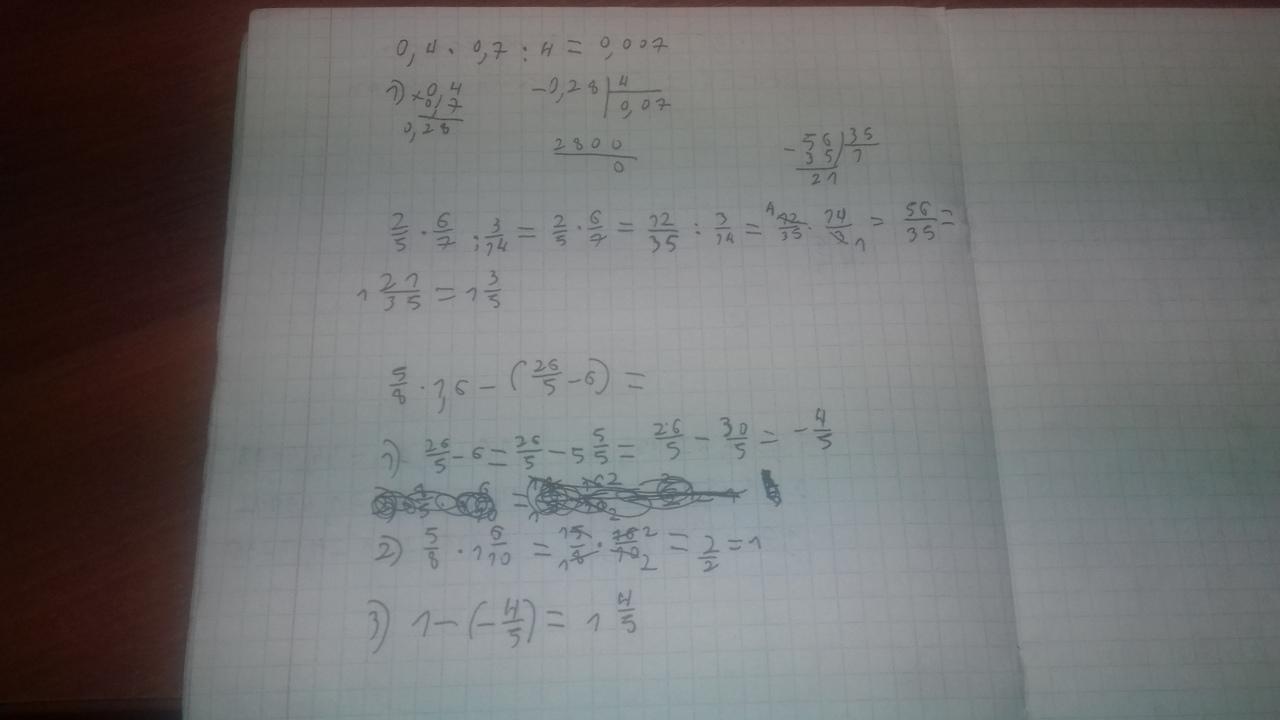 0,4 · 0,7 : 4 = 0,007
1) ×0,4 -0,28 | 4
0,7 0,07
0,28
2800 -56 | 35
0 35 1
21
2/5 · 6/7 : 3/14 = 2/5 · 6/7 = 12/35 : 3/14 = 4 12/35 · 14/3 1 = 56/35 =
1 21/35 = 1 3/5
5/8 · 1,6 - (26/5 - 6) =
1) 26/5 - 6 = 26/5 - 5 5/5 = 26/5 - 30/5 = - 4/5
2) 5/8 · 1 6/10 = 1 5/8 1 · 16/10 2 2 = 2/2 = 1
3) 1 - (- 4/5) = 1 4/5